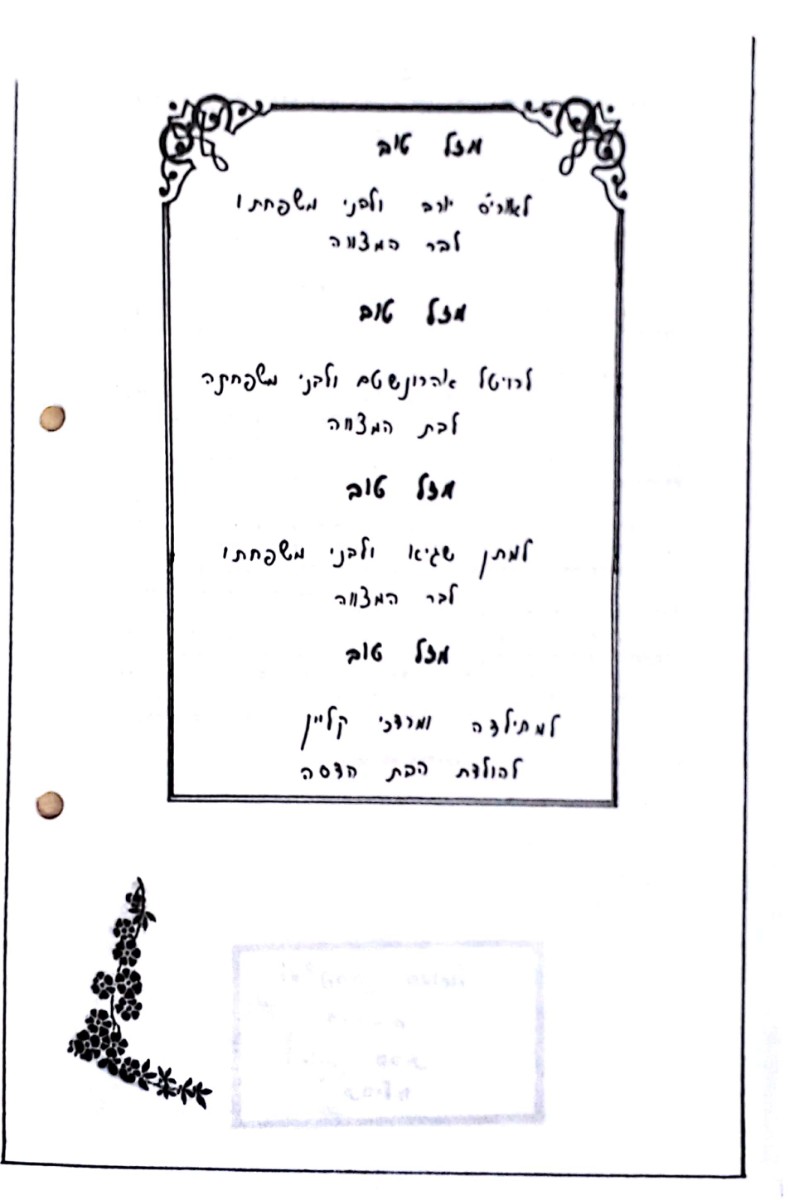 מזל טוב
יורב ולבני משפחתו
לבר המצווה
מזל טוב
לרויטל אהרונשטם ולבני משפחתה
לבת המצווה
מזל טוב
למתן שגיא ולבני משפחתו
לבר המצווה
מזל טוב
למתילדה ומרדכי קליין
להולדת הבת הדסה